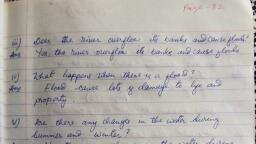 Page-32
iii) Does the river overflow its banks and cause floods?
Ans Yes the river overflow its banks and cause floods
iv) What happens when there is a flood?
Ans Flood cause lots of damage to life and
property
v) Are there any changes in the water during
summer and winter?
the water during